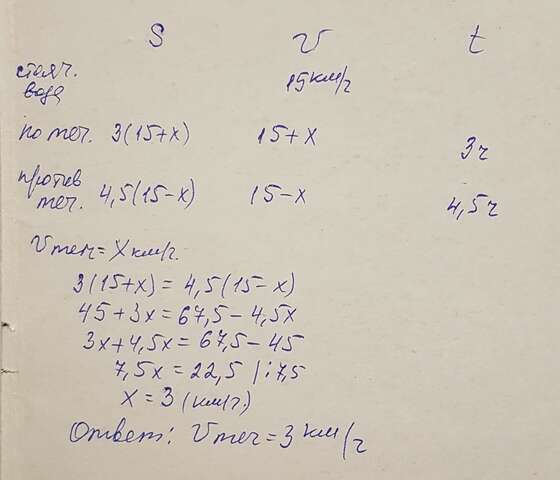 S V t
стояч. вода 15 км/ч
по теч. 3(15+x) 15+x 3ч
против теч. 4,5(15-x) 15-x 4,5ч
Vтеч=x км/ч.
3(15+x)=4,5(15-x)
45+3x=67,5-4,5x
3x+4,5x=67,5-45
7,5x=22,5 |:7,5
x=3 (км/ч.)
Ответ: Vтеч=3 км/ч